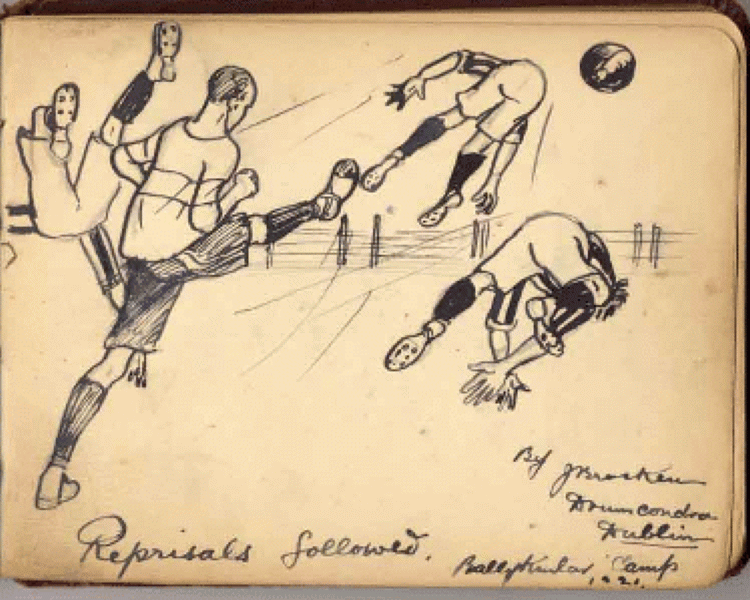 By J Bracken
Drumcondra
Dublin
Reprisals followed.
Ballykinlar Camp
1921.